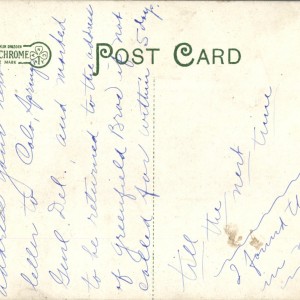 CHROME
TRADE MARK
POST CARD
address your next
letter to Colo. Springs
Genl. Del. and marked
to be returned to the store
of Greenfield Bros if not
called for within 5 days.
till the next time
I found th
in